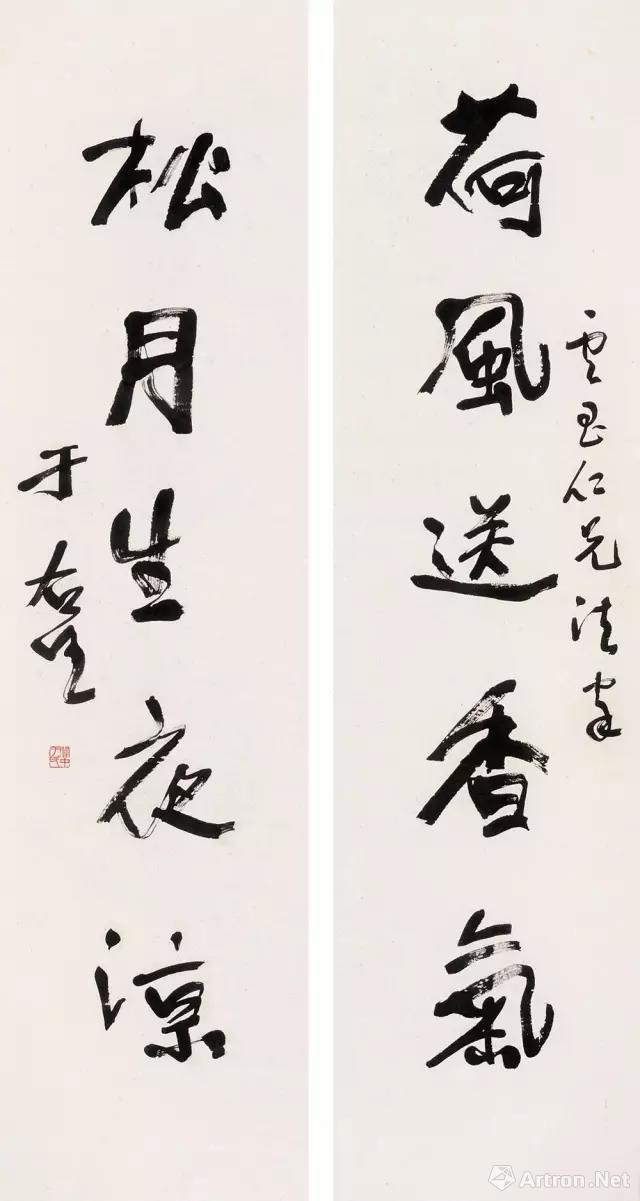 荷風送香氣
仁兄法家
松月生夜涼
于右任
Artron.Net